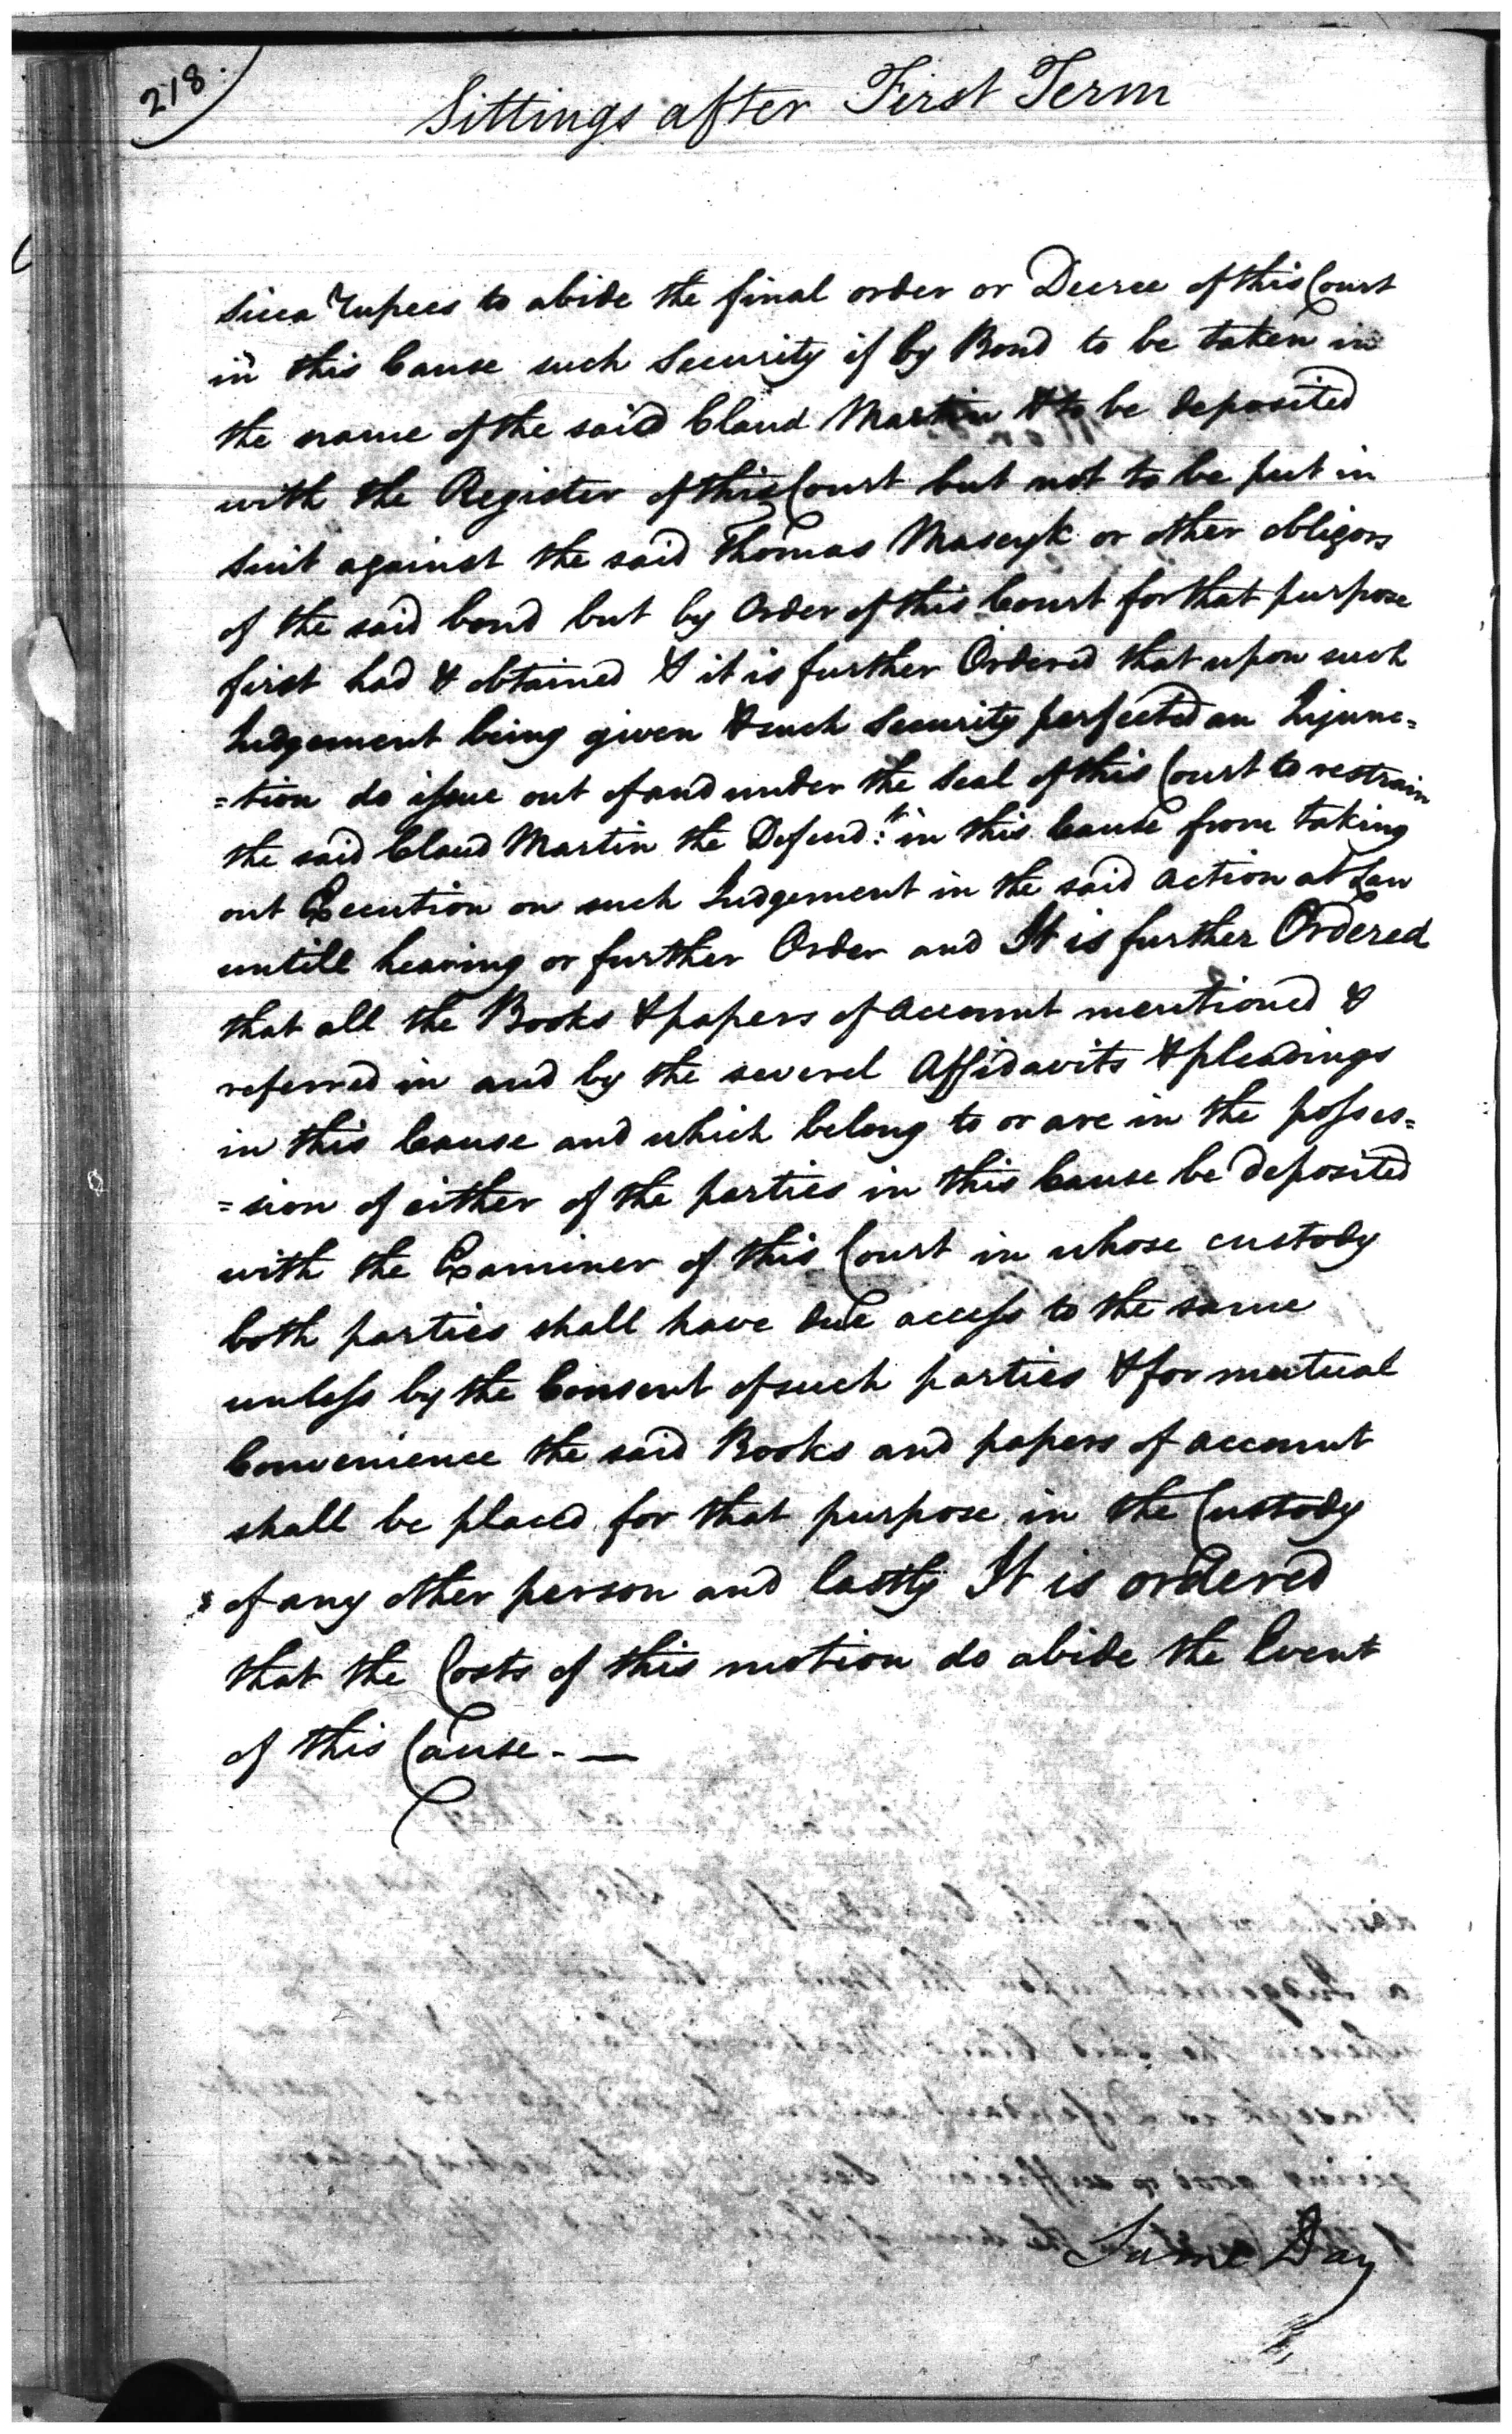 218.
Sittings after First Term
Sicca Rupees to abide the final order or Decree of this Court
in this Cause such Security if by Bond to be taken in
the name of the said Claud Martin & to be deposited
with the Register of this Court but not to be put in
suit against the said Thomas Maseyk or other obligors
of the said bond but by Order of this Court for that purpose
first had & obtained & it is further Ordered that upon such
Judgement being given & such Security perfected an Injunc=
=tion do issue out of and under the Seal of this Court to restrain
the said Claud Martin the Defend:t in this Cause from taking
out Execution on such Judgement in the said action at Law
untill hearing or further Order and It is further Ordered
that all the Books & papers of account mentioned &
referred in and by the several Affidavits & pleadings
in this Cause and which belong to or are in the posses=
=sion of either of the parties in this Cause be deposited
with the Examiner of this Court in whose custody
both parties shall have due access to the same
unless by the Consent of such parties & for mutual
Convenience the said Books and papers of account
shall be placed for that purpose in the Custody
of any other person and lastly It is ordered
that the Costs of this motion do abide the Event
of this Cause. —
Same Day